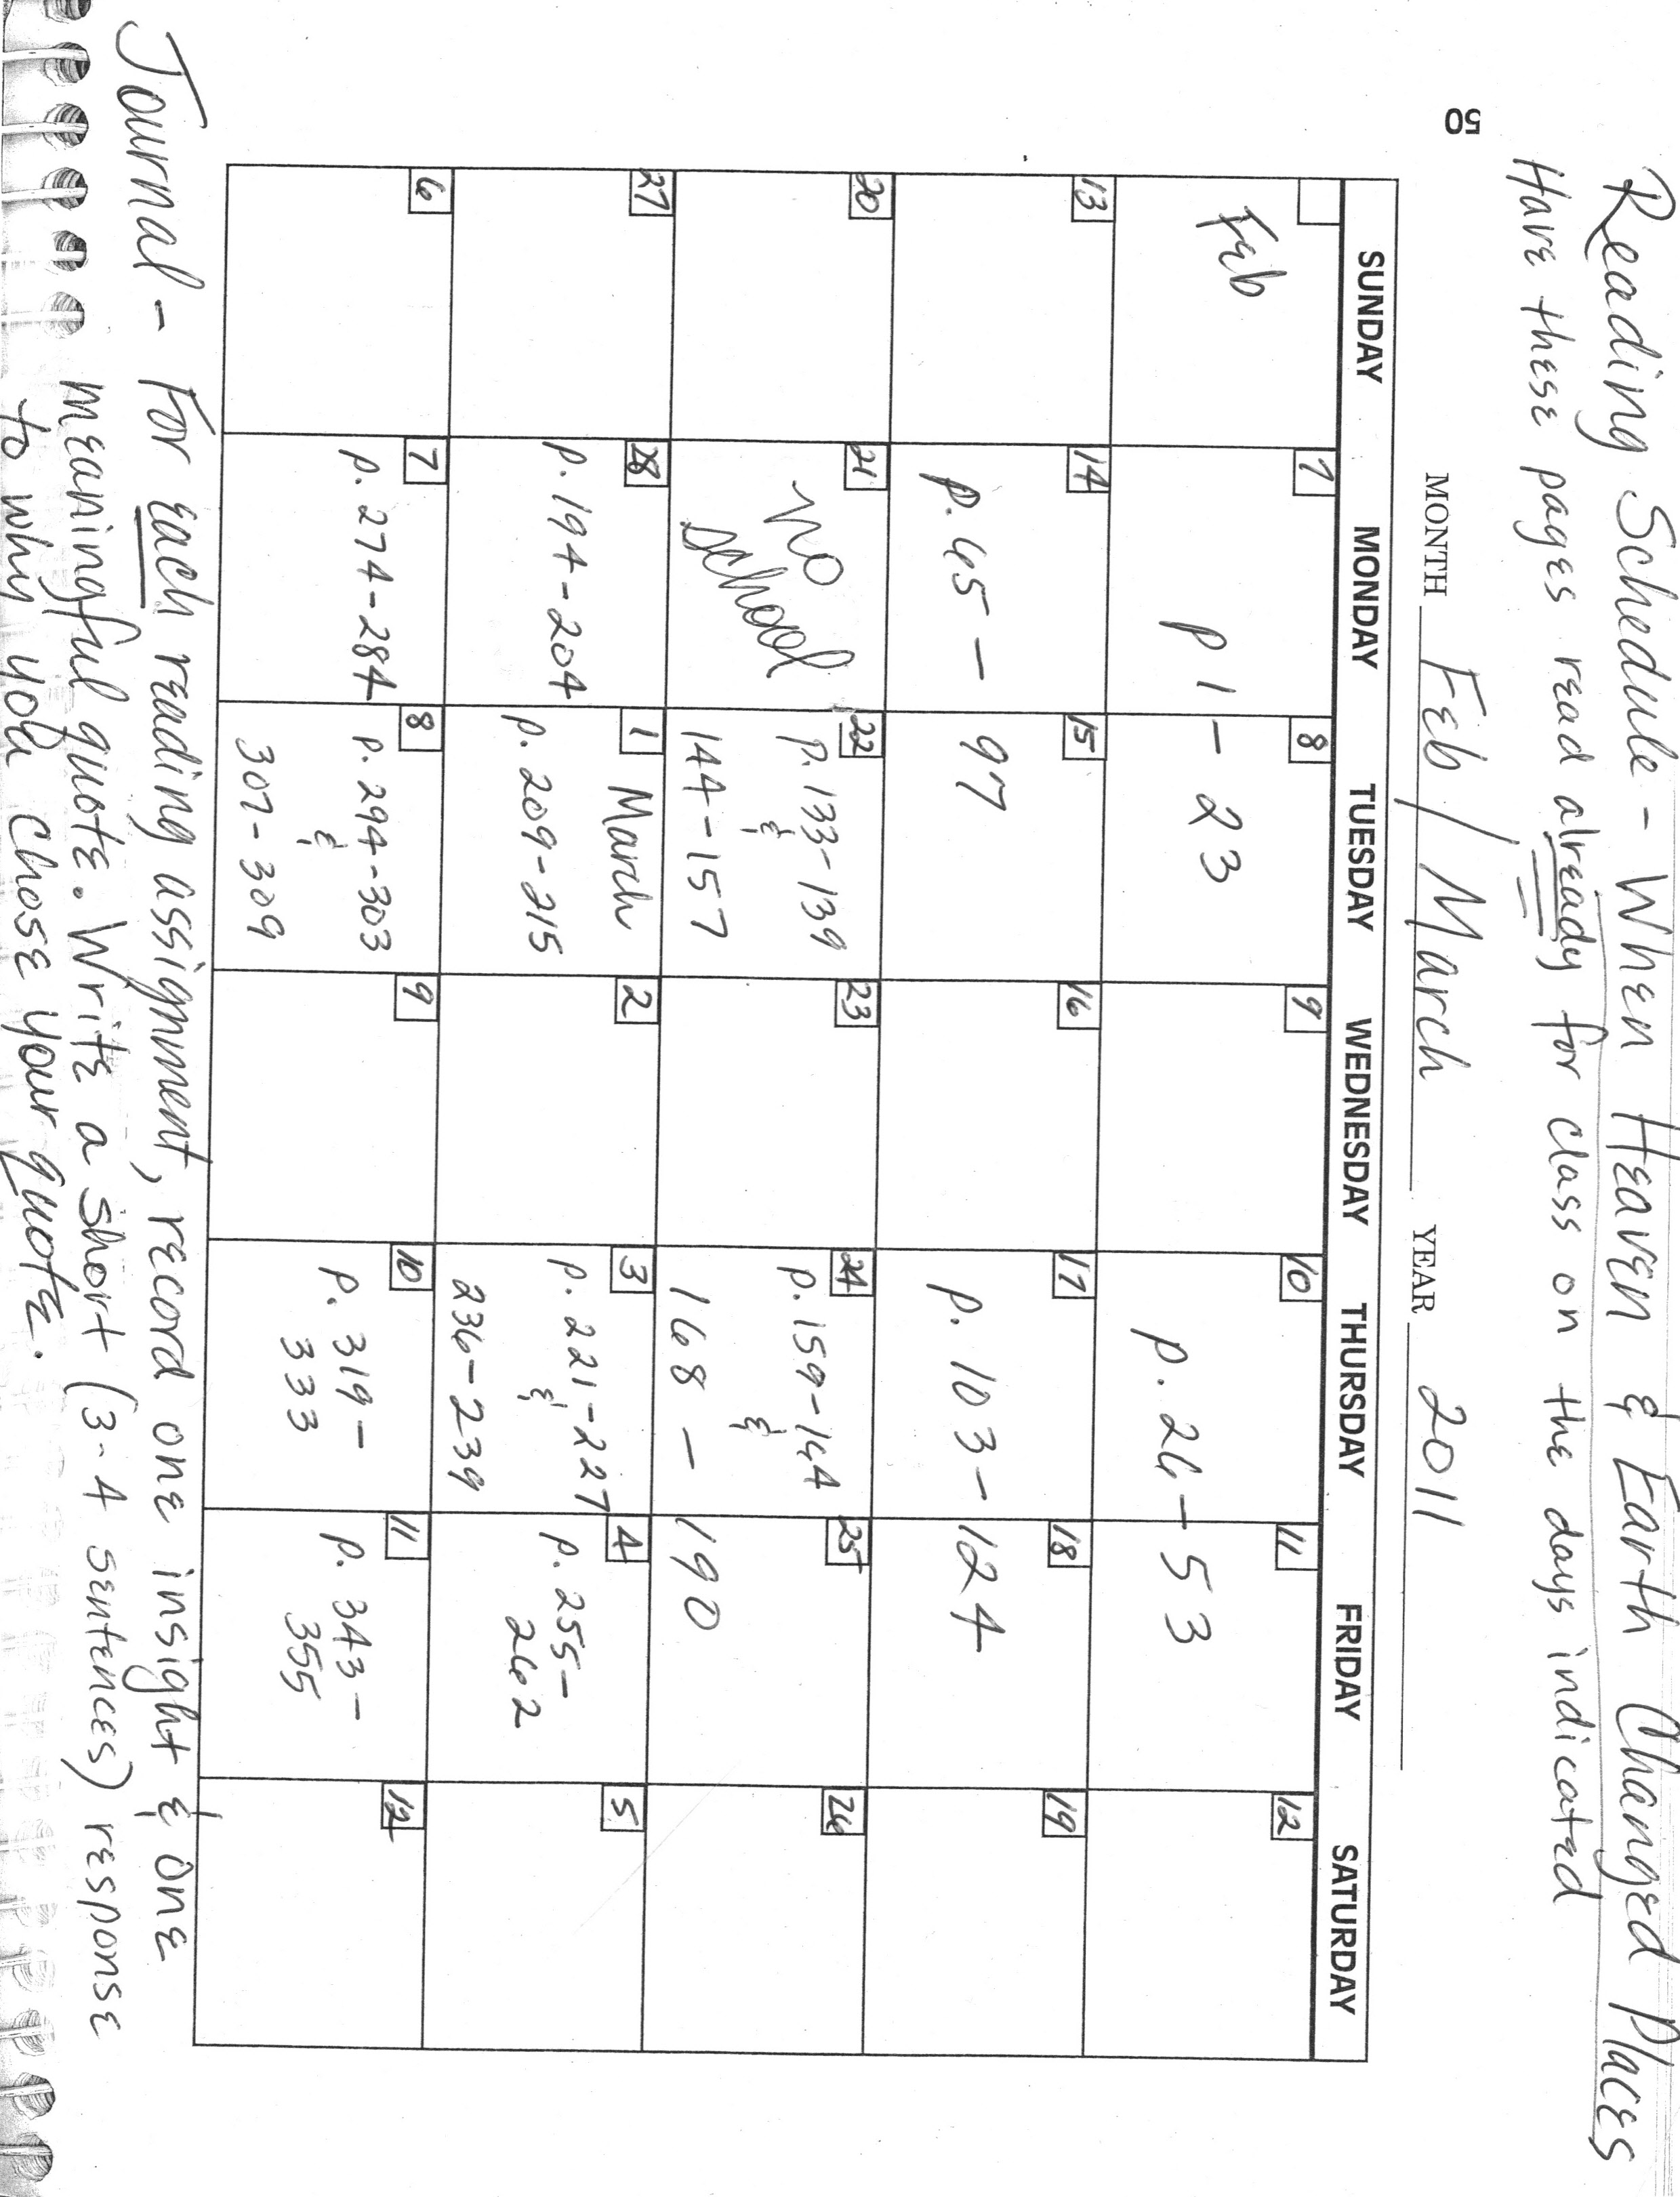 Reading Schedule - When Heaven & Earth Changed Places
Have these pages read already for class on the days indicated
50
MONTH Feb / March YEAR 2011
SUNDAY MONDAY TUESDAY WEDNESDAY THURSDAY FRIDAY SATURDAY
7 8 9 10 11 12
Feb p 1 - 23 p. 26 - 53
13 14 15 16 17 18 19
p. 65 - 97 p. 103 - 124
20 21 22 23 24 25 26
no school p. 133-139 & 144-157 p. 159-164 & 168 - 190
27 28 1 March 2 3 4 5
p. 194-204 p. 209-215 p. 221-227 & 236-239 p. 255-262
6 7 8 9 10 11 12
p. 274-284 p. 294-303 & 307-309 p. 319-333 p. 343-355
Journal - For each reading assignment, record one insight & one
meaningful quote. Write a short (3-4 sentences) response
to why you chose your quote.